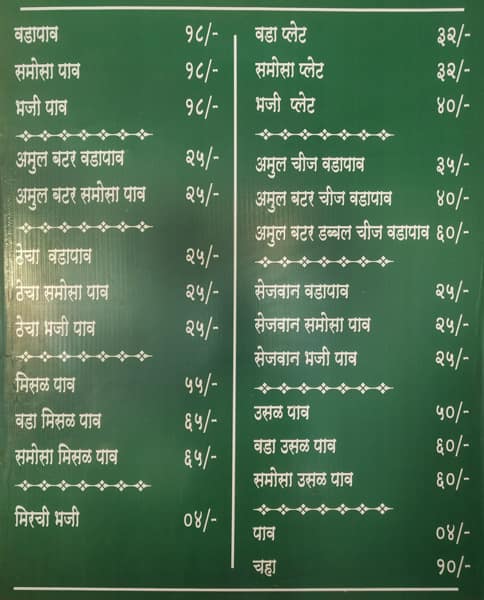 वडापाव १८/-
समोसा पाव १८/-
भजी पाव १८/-
अमुल बटर वडापाव २५/-
अमुल बटर समोसा पाव २५/-
ठेचा वडापाव २५/-
ठेचा समोसा पाव २५/-
ठेचा भजी पाव २५/-
मिसळ पाव ५५/-
वडा मिसळ पाव ६५/-
समोसा मिसळ पाव ६५/-
मिरची भजी ०४/-
वडा प्लेट ३२/-
समोसा प्लेट ३२/-
भजी प्लेट ४०/-
अमुल चीज वडापाव ३५/-
अमुल बटर चीज वडापाव ४०/-
अमुल बटर डब्बल चीज वडापाव ६०/-
सेजवान वडापाव २५/-
सेजवान समोसा पाव २५/-
सेजवान भजी पाव २५/-
उसळ पाव ५०/-
वडा उसळ पाव ६०/-
समोसा उसळ पाव ६०/-
पाव ०४/-
चहा १०/-